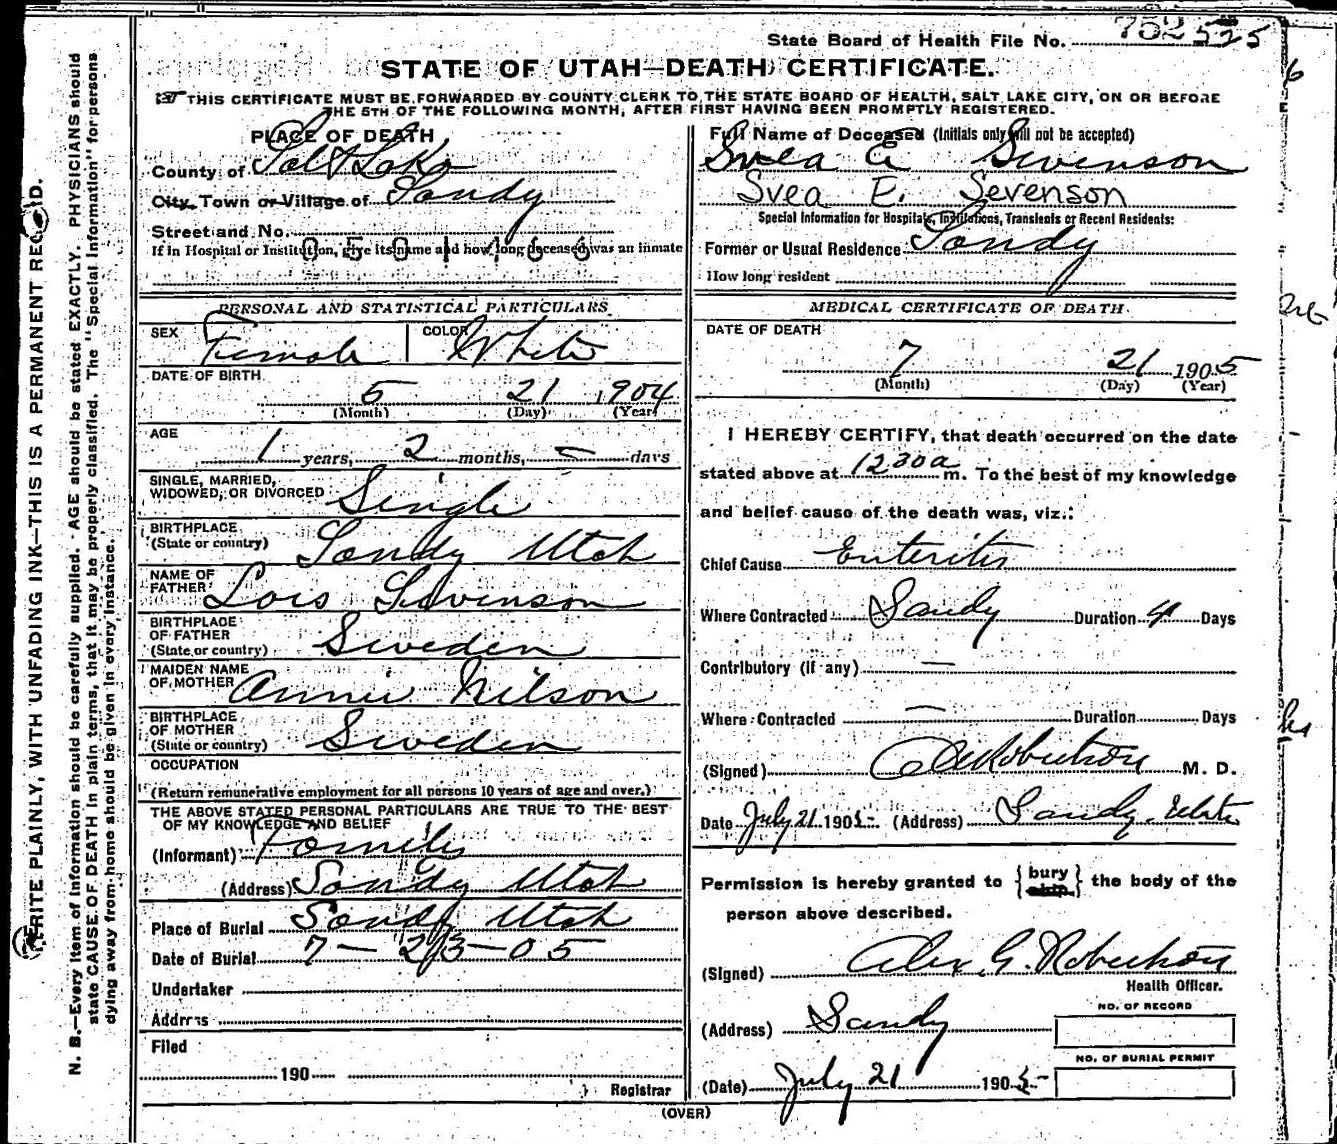 State Board of Health File No. 752 525
STATE OF UTAH—DEATH CERTIFICATE.
THIS CERTIFICATE MUST BE FORWARDED BY COUNTY CLERK TO THE STATE BOARD OF HEALTH, SALT LAKE CITY, ON OR BEFORE
THE 5TH OF THE FOLLOWING MONTH, AFTER FIRST HAVING BEEN PROMPTLY REGISTERED.
PLACE OF DEATH
County of Salt Lake
City, Town or Village of Sandy
Street and No.
0501466
If in Hospital or Institution, give its name and how long deceased was an inmate
Full Name of Deceased (Initials only will not be accepted)
Svea E Sevenson
Svea E. Sevenson
Special Information for Hospitals, Institutions, Transients or Recent Residents:
Former or Usual Residence Sandy
How long resident
PERSONAL AND STATISTICAL PARTICULARS
SEX Female COLOR White
DATE OF BIRTH
5 21 1904
(Month) (Day) (Year)
AGE
1 years, 2 months, — days
SINGLE, MARRIED,
WIDOWED, OR DIVORCED Single
BIRTHPLACE
(State or country) Sandy Utah
NAME OF
FATHER Lois Sevenson
BIRTHPLACE
OF FATHER
(State or country) Sweden
MAIDEN NAME
OF MOTHER Annie Nilson
BIRTHPLACE
OF MOTHER
(State or country) Sweden
OCCUPATION
(Return remunerative employment for all persons 10 years of age and over.)
THE ABOVE STATED PERSONAL PARTICULARS ARE TRUE TO THE BEST
OF MY KNOWLEDGE AND BELIEF
(Informant) Family
(Address) Sandy Utah
Place of Burial Sandy Utah
Date of Burial 7-23-05
Undertaker
Address
Filed
190
Registrar
MEDICAL CERTIFICATE OF DEATH
DATE OF DEATH
7 21 1905
(Month) (Day) (Year)
I HEREBY CERTIFY, that death occurred on the date
stated above at 1230a m. To the best of my knowledge
and belief cause of the death was, viz.:
Chief Cause Enteritis
Where Contracted Sandy Duration 4 Days
Contributory (if any) —
Where Contracted — Duration Days
(Signed) Robertson M. D.
Date July 21 1905 (Address) Sandy Utah
Permission is hereby granted to {bury ship} the body of the
person above described.
(Signed) Alex. G. Robertson
Health Officer.
(Address) Sandy
NO. OF RECORD
NO. OF BURIAL PERMIT
(Date) July 21 1905
(OVER)
WRITE PLAINLY, WITH UNFADING INK—THIS IS A PERMANENT RECORD.
N. B.—Every item of information should be carefully supplied. AGE should be stated EXACTLY. PHYSICIANS should
state CAUSE OF DEATH in plain terms, that it may be properly classified. The "Special Information" for persons
dying away from home should be given in every instance.